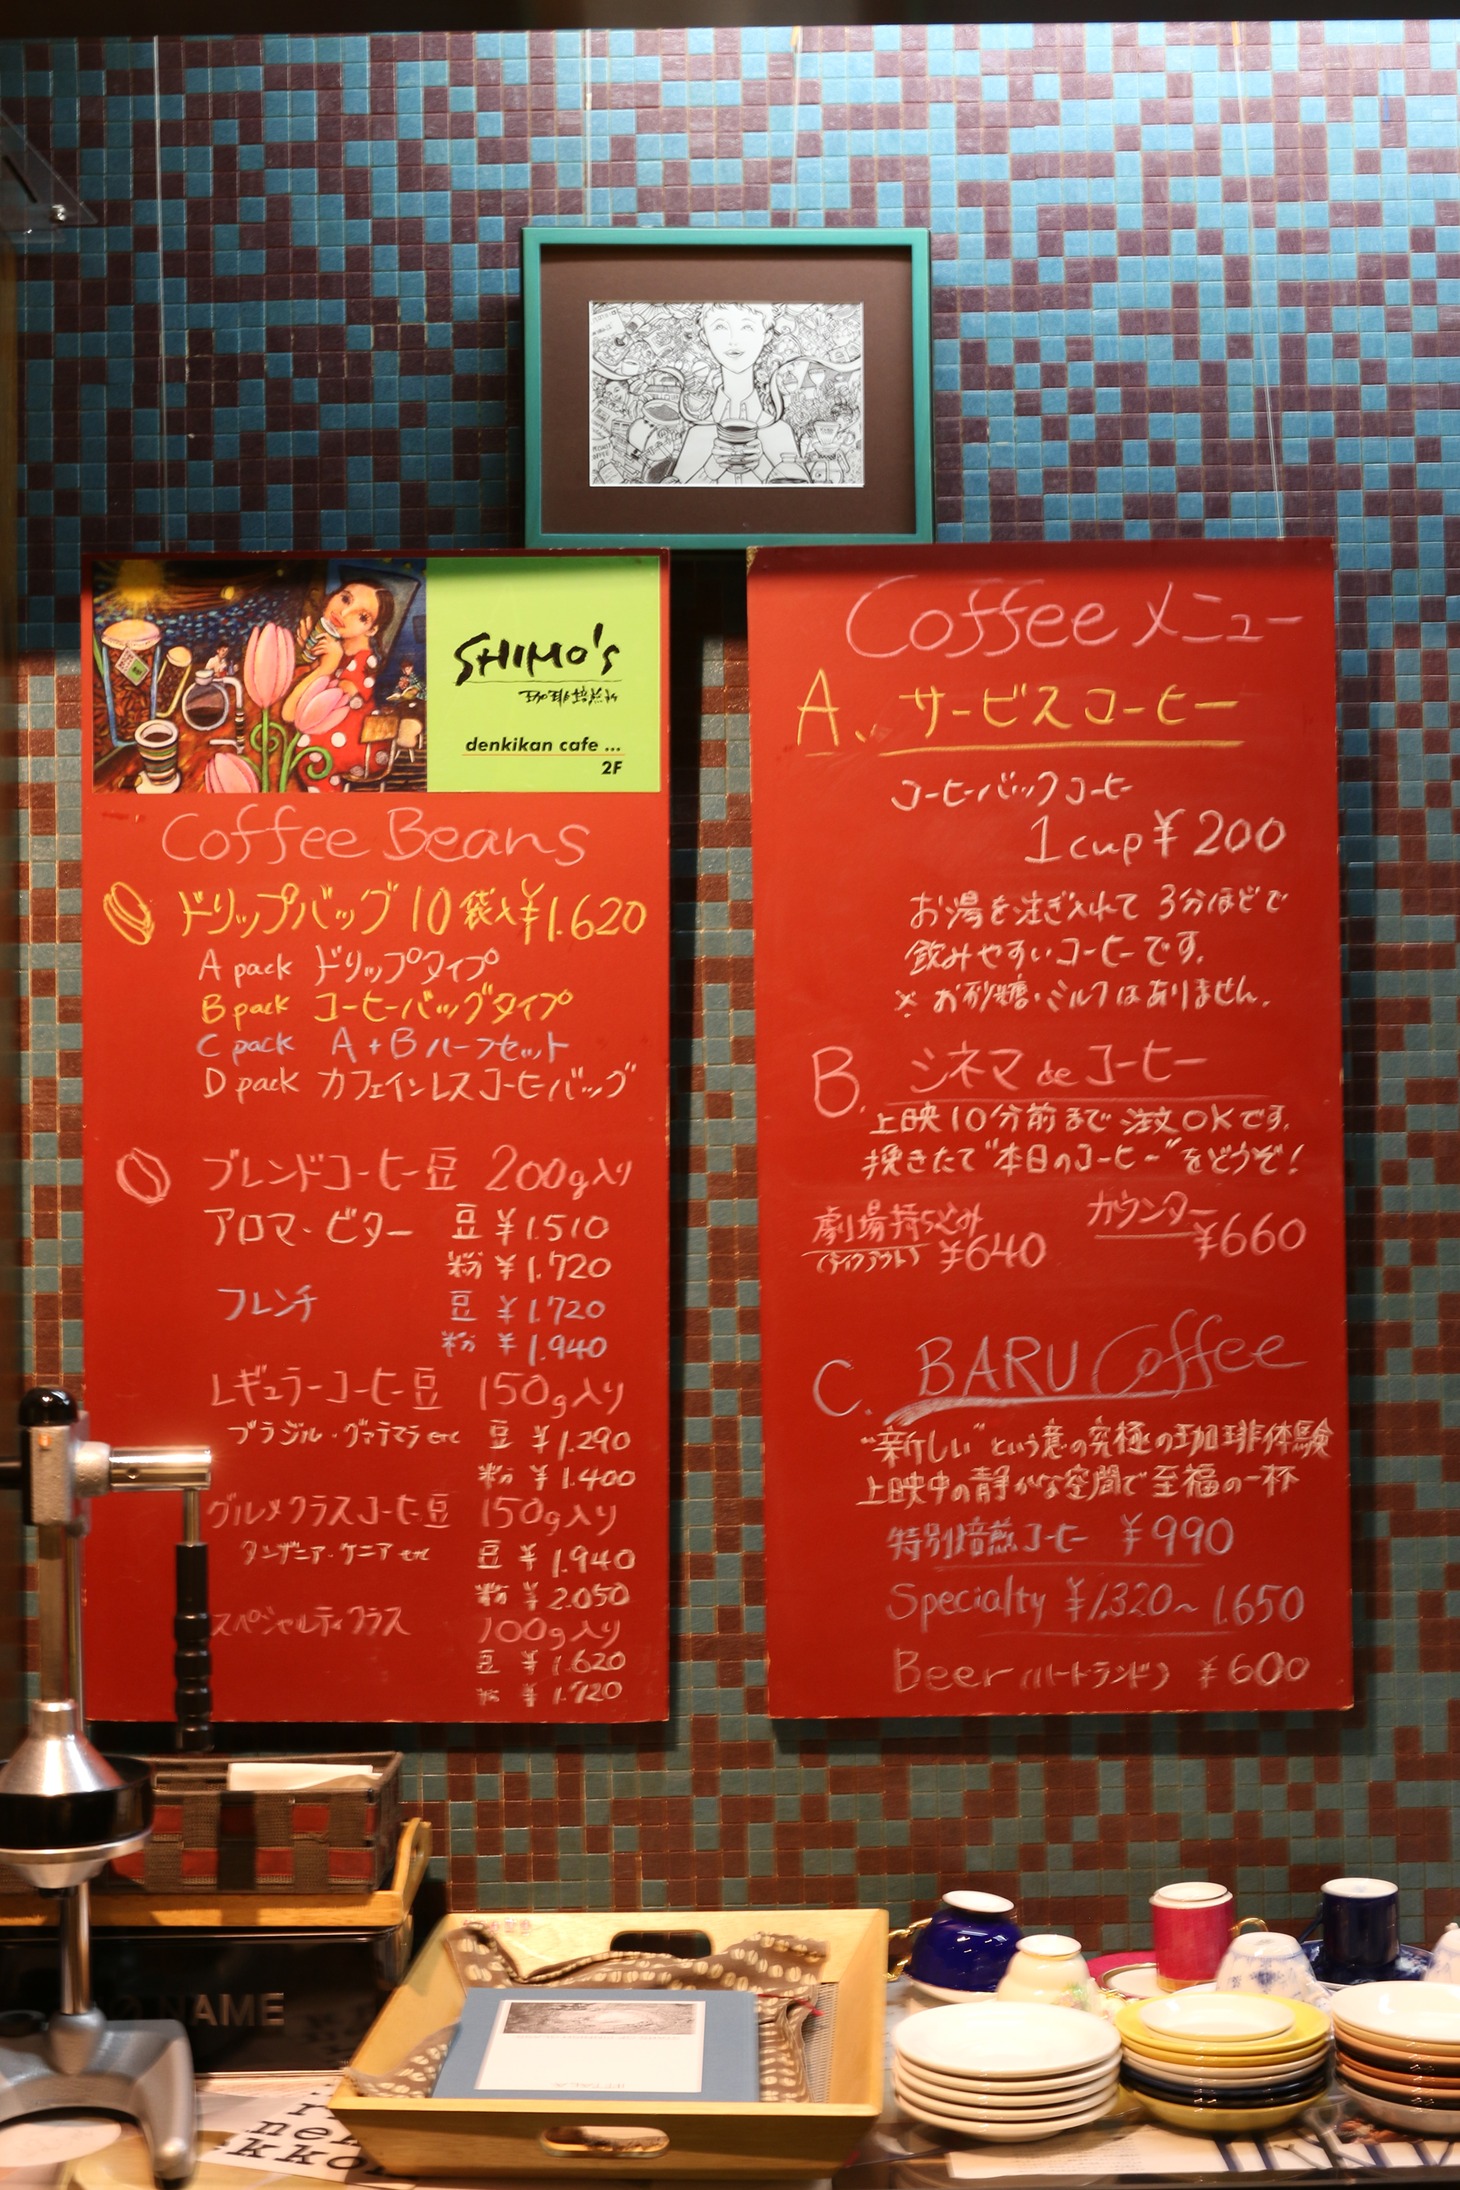 SHIMO's
珈琲焙煎所
denkikan cafe ...
2F
Coffee Beans
ドリップバッグ 10袋入 ¥1.620
A pack ドリップタイプ
B pack コーヒーバッグタイプ
C pack A+B ハーフセット
D pack カフェインレスコーヒーバッグ
ブレンドコーヒー豆 200g入り
アロマ・ビター 豆 ¥1.510
粉 ¥1.720
フレンチ 豆 ¥1.720
粉 ¥1.940
レギュラーコーヒー豆 150g入り
ブラジル・グァテマラ etc 豆 ¥1.290
粉 ¥1.400
グルメクラスコーヒー豆 150g入り
タンザニア・ケニア etc 豆 ¥1.940
粉 ¥2.050
スペシャルティクラス 100g入り
豆 ¥1.620
粉 ¥1.720
Coffee メニュー
A、サービスコーヒー
コーヒーバックコーヒー
1cup ¥200
お湯を注ぎ入れて 3分ほどで
飲みやすいコーヒーです。
※ お砂糖・ミルクはありません。
B. シネマ de コーヒー
上映10分前まで注文OKです。
挽きたて"本日のコーヒー"をどうぞ!
劇場持ち込み カウンター
(テイクアウト) ¥640 ¥660
C. BARU Coffee
"新しい"という意の究極の珈琲体験
上映中の静かな空間で至福の一杯
特別焙煎コーヒー ¥990
Specialty ¥1.320~1.650
Beer (ハートランド) ¥600
NAME